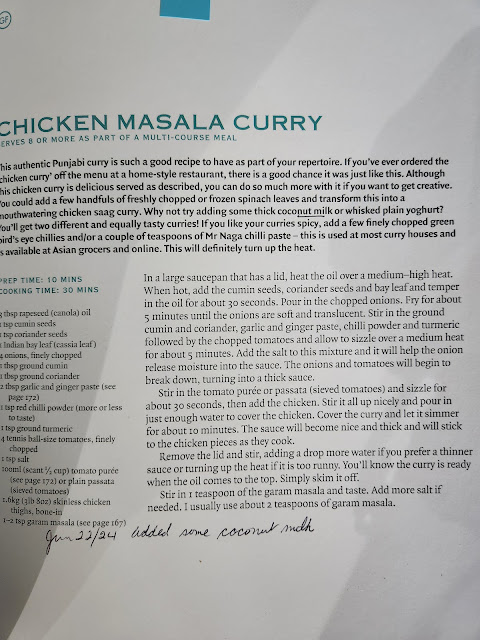 GF
CHICKEN MASALA CURRY
SERVES 8 OR MORE AS PART OF A MULTI-COURSE MEAL
his authentic Punjabi curry is such a good recipe to have as part of your repertoire. If you've ever ordered the
chicken curry' off the menu at a home-style restaurant, there is a good chance it was just like this. Although
his chicken curry is delicious served as described, you can do so much more with it if you want to get creative.
You could add a few handfuls of freshly chopped or frozen spinach leaves and transform this into a
mouthwatering chicken saag curry. Why not try adding some thick coconut milk or whisked plain yoghurt?
You'll get two different and equally tasty curries! If you like your curries spicy, add a few finely chopped green
bird's eye chillies and/or a couple of teaspoons of Mr Naga chilli paste – this is used at most curry houses and
s available at Asian grocers and online. This will definitely turn up the heat.
PREP TIME: 10 MINS
COOKING TIME: 30 MINS
3 tbsp rapeseed (canola) oil
1 tsp cumin seeds
1 tsp coriander seeds
1 Indian bay leaf (cassia leaf)
4 onions, finely chopped
1 tbsp ground cumin
1 tbsp ground coriander
2 tbsp garlic and ginger paste (see
page 172)
1 tsp red chilli powder (more or less
to taste)
1 tsp ground turmeric
4 tennis ball-size tomatoes, finely
chopped
1 tsp salt
100ml (scant ½ cup) tomato purée
(see page 172) or plain passata
(sieved tomatoes)
1.6kg (3lb 8oz) skinless chicken
thighs, bone-in
1–2 tsp garam masala (see page 167)
In a large saucepan that has a lid, heat the oil over a medium–high heat.
When hot, add the cumin seeds, coriander seeds and bay leaf and temper
in the oil for about 30 seconds. Pour in the chopped onions. Fry for about
5 minutes until the onions are soft and translucent. Stir in the ground
cumin and coriander, garlic and ginger paste, chilli powder and turmeric
followed by the chopped tomatoes and allow to sizzle over a medium heat
for about 5 minutes. Add the salt to this mixture and it will help the onion
release moisture into the sauce. The onions and tomatoes will begin to
break down, turning into a thick sauce.
Stir in the tomato purée or passata (sieved tomatoes) and sizzle for
about 30 seconds, then add the chicken. Stir it all up nicely and pour in
just enough water to cover the chicken. Cover the curry and let it simmer
for about 10 minutes. The sauce will become nice and thick and will stick
to the chicken pieces as they cook.
Remove the lid and stir, adding a drop more water if you prefer a thinner
sauce or turning up the heat if it is too runny. You'll know the curry is ready
when the oil comes to the top. Simply skim it off.
Stir in 1 teaspoon of the garam masala and taste. Add more salt if
needed. I usually use about 2 teaspoons of garam masala.
Jun 22/24 added some coconut milk